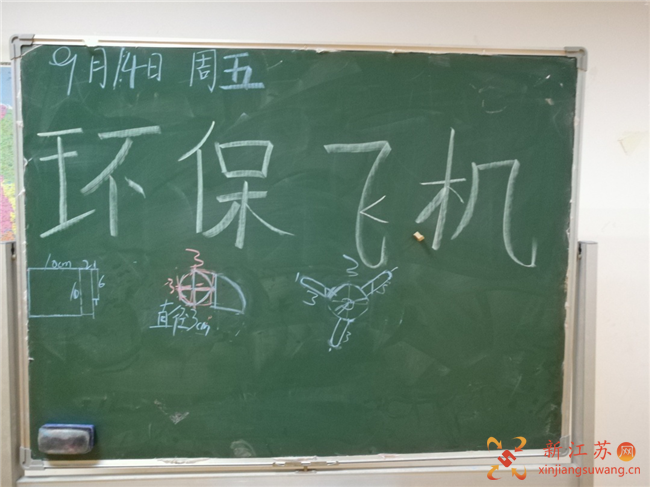 9月14日 周五
环保飞机
10cm 2 1
10 6
3
3
直径3cm
3
1 3
3
新江苏网
xinjiangsuwang.cn